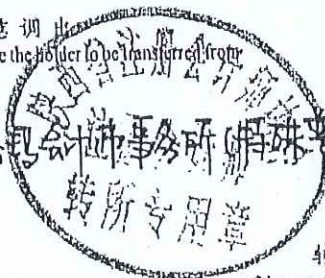 意调出
e the holder to be transferred from
陕西省注册会计师协
会计师事务所(特殊普
转所专用章